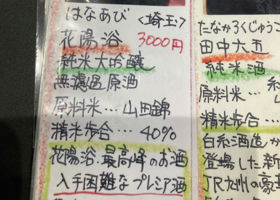 はなあび 〈埼玉〉
花陽浴 3000円
純米大吟醸
無濾過原酒
原料米…山田錦
精米歩合…40%
花陽浴、最高峰のお酒
入手困難なプレミア酒
たなかろくじゅうご
田中六五
純米酒
原料米…
精米歩合
白糸酒造が
登場した新
JR九州の豪